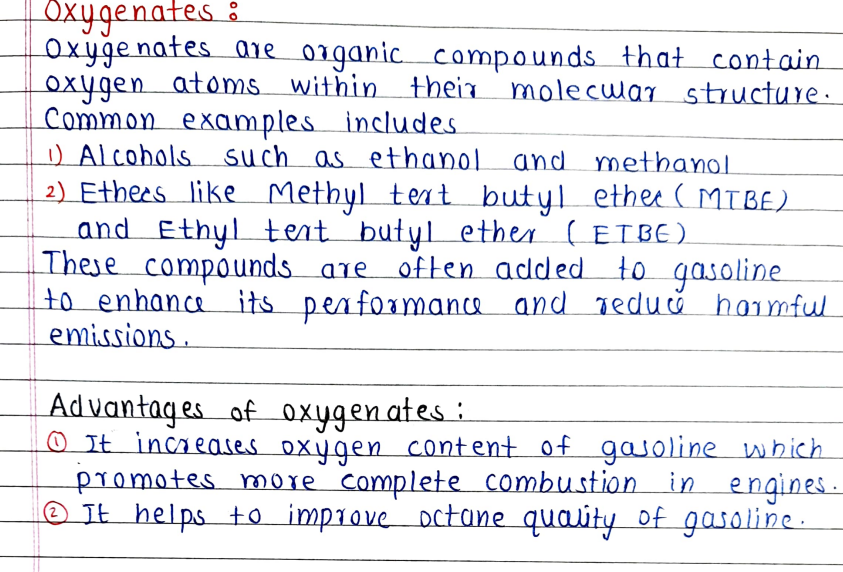 Oxygenates :
Oxygenates are organic compounds that contain
oxygen atoms within their molecular structure.
Common examples includes
1) Alcohols such as ethanol and methanol
2) Ethers like Methyl tert butyl ether ( MTBE)
and Ethyl tert butyl ether ( ETBE)
These compounds are often added to gasoline
to enhance its performance and reduce harmful
emissions.
Advantages of oxygenates :
① It increases oxygen content of gasoline which
promotes more complete combustion in engines.
② It helps to improve octane quality of gasoline.